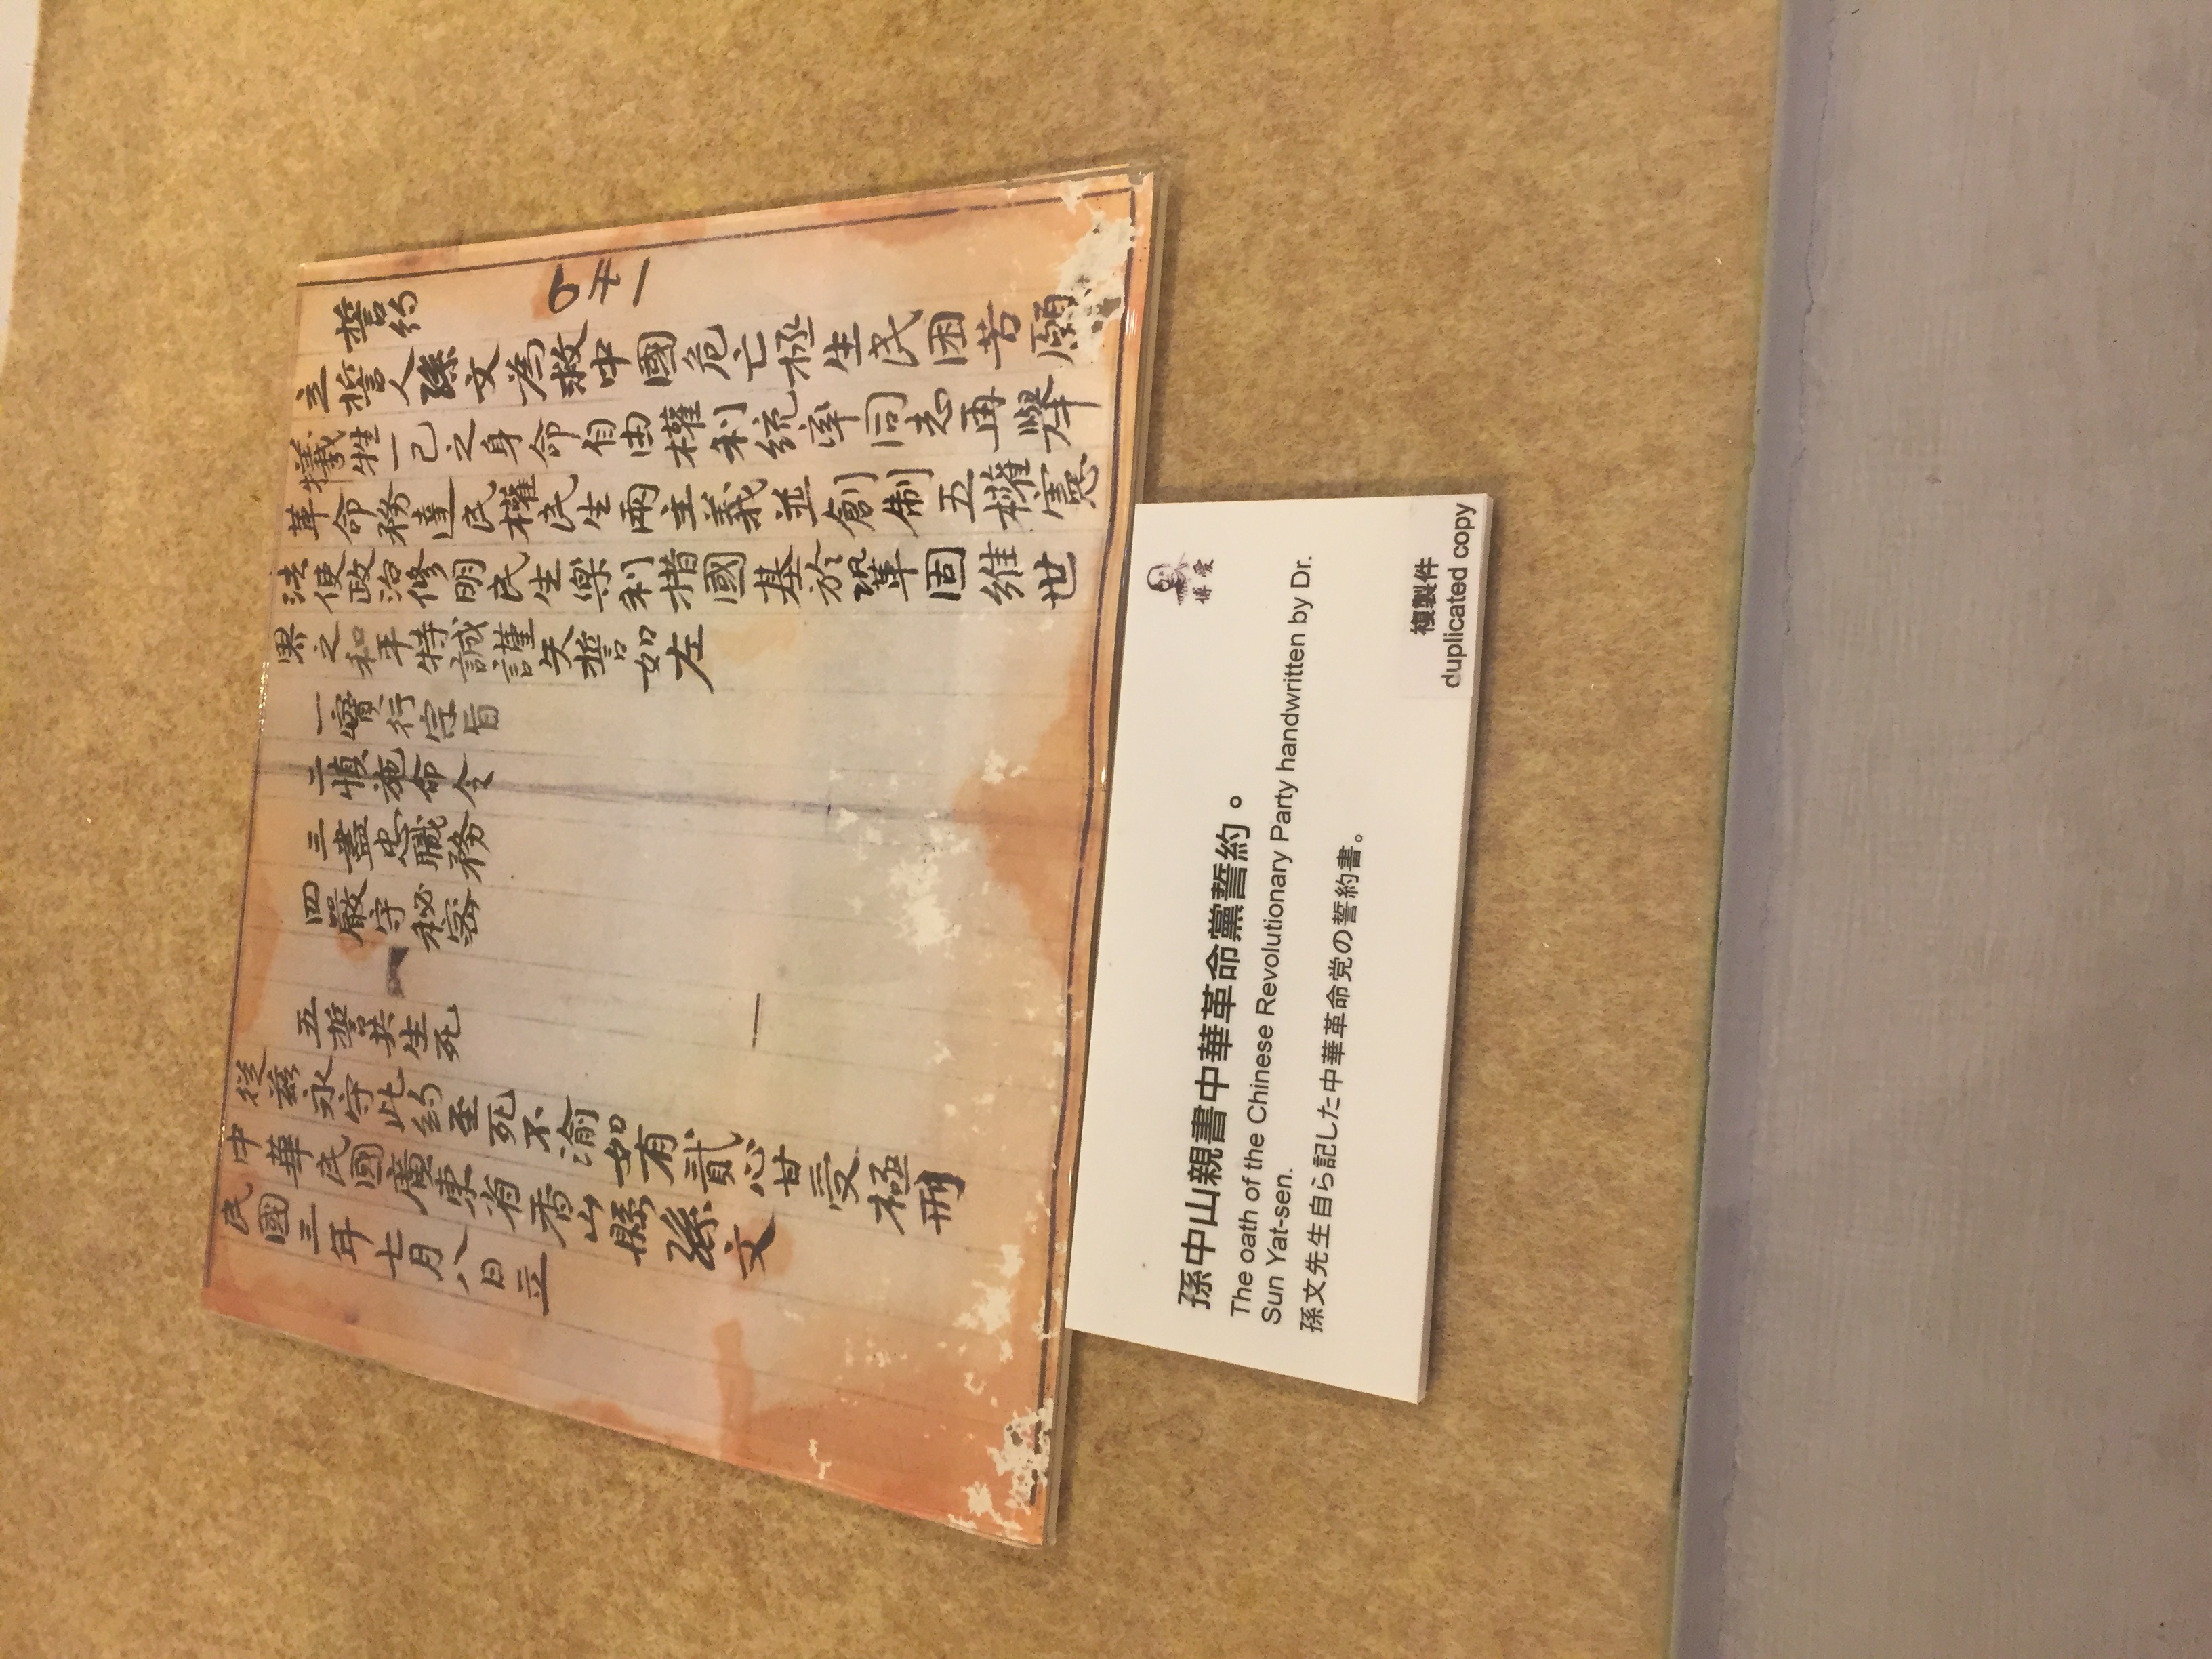 誓約
立誓人孫文為救中國危亡極生民困苦願
犠牲一己之身命自由權利統率同志再舉
革命務達民權民生兩主義並創制五權憲
法使政治修明民生樂利措國基於鞏固維世
界之和平特誠謹矢誓如左
一實行宗旨
二慎施命令
三盡忠職務
四嚴守秘密
五誓共生死
從茲永守此約至死不渝如有貳心甘受極刑
中華民國廣東省香山縣孫文
民國三年七月八日立
博愛
孫中山親書中華革命黨誓約。
The oath of the Chinese Revolutionary Party handwritten by Dr.
Sun Yat-sen.
孫文先生自ら記した中華革命党の誓約書。
複製件
duplicated copy